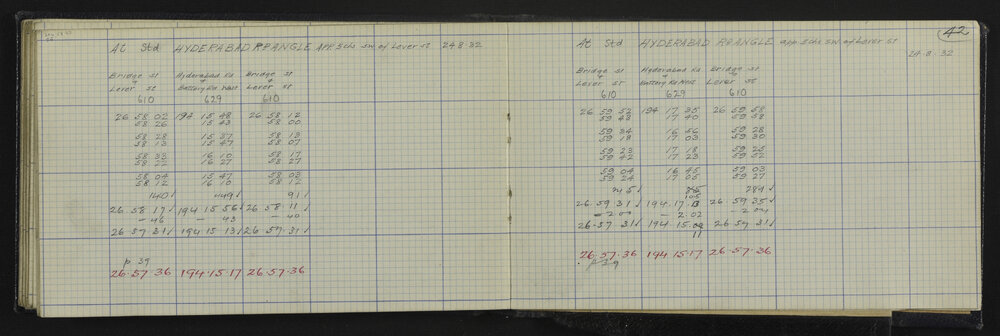 At Std HYDERABAD RD ANGLE app 5chs SW of Lever st 24.8.32
Bridge st Hyderabad Rd Bridge st
+ + +
Lever st Battery Rd West Lever st
610 629 610
26 58 02 194 15 48 26 58 12
58 26 15 43 58 00
58 28 15 37 58 13
58 13 15 47 58 07
58 33 16 10 58 17
58 22 16 27 58 27
58 04 15 47 58 03
58 12 16 10 58 12
140 √ 449 √ 91 √
26.58.17 √ 194 15 56 √ 26.58.11 √
- 46 - 43 - 40
26 57 31 √ 194 15 13 √ 26 57 31 √
p 39
26.57.36 194.15.17 26.57.36
42
At Std HYDERABAD RD ANGLE app 5chs SW of Lever St
24.8.32
Bridge st Hyderabad Rd Bridge st
+ + +
Lever st Battery Rd West Lever st
610 629 610
26 59 52 194 17 35 26 59 58
59 48 17 40 59 58
59 34 16 56 59 28
59 18 17 03 59 30
59 23 17 18 59 25
59 42 17 23 59 52
59 04 16 45 59 03
59 24 17 05 59 27
245 √ 284 √
105
26.59 31 √ 194.17.13 26 59 35 √
- 2.00 - 2.02 - 2 04
26.57 31 √ 194 15. 26 57 31 √
11
26.57.36 194.15.17 26.57.36
p 39